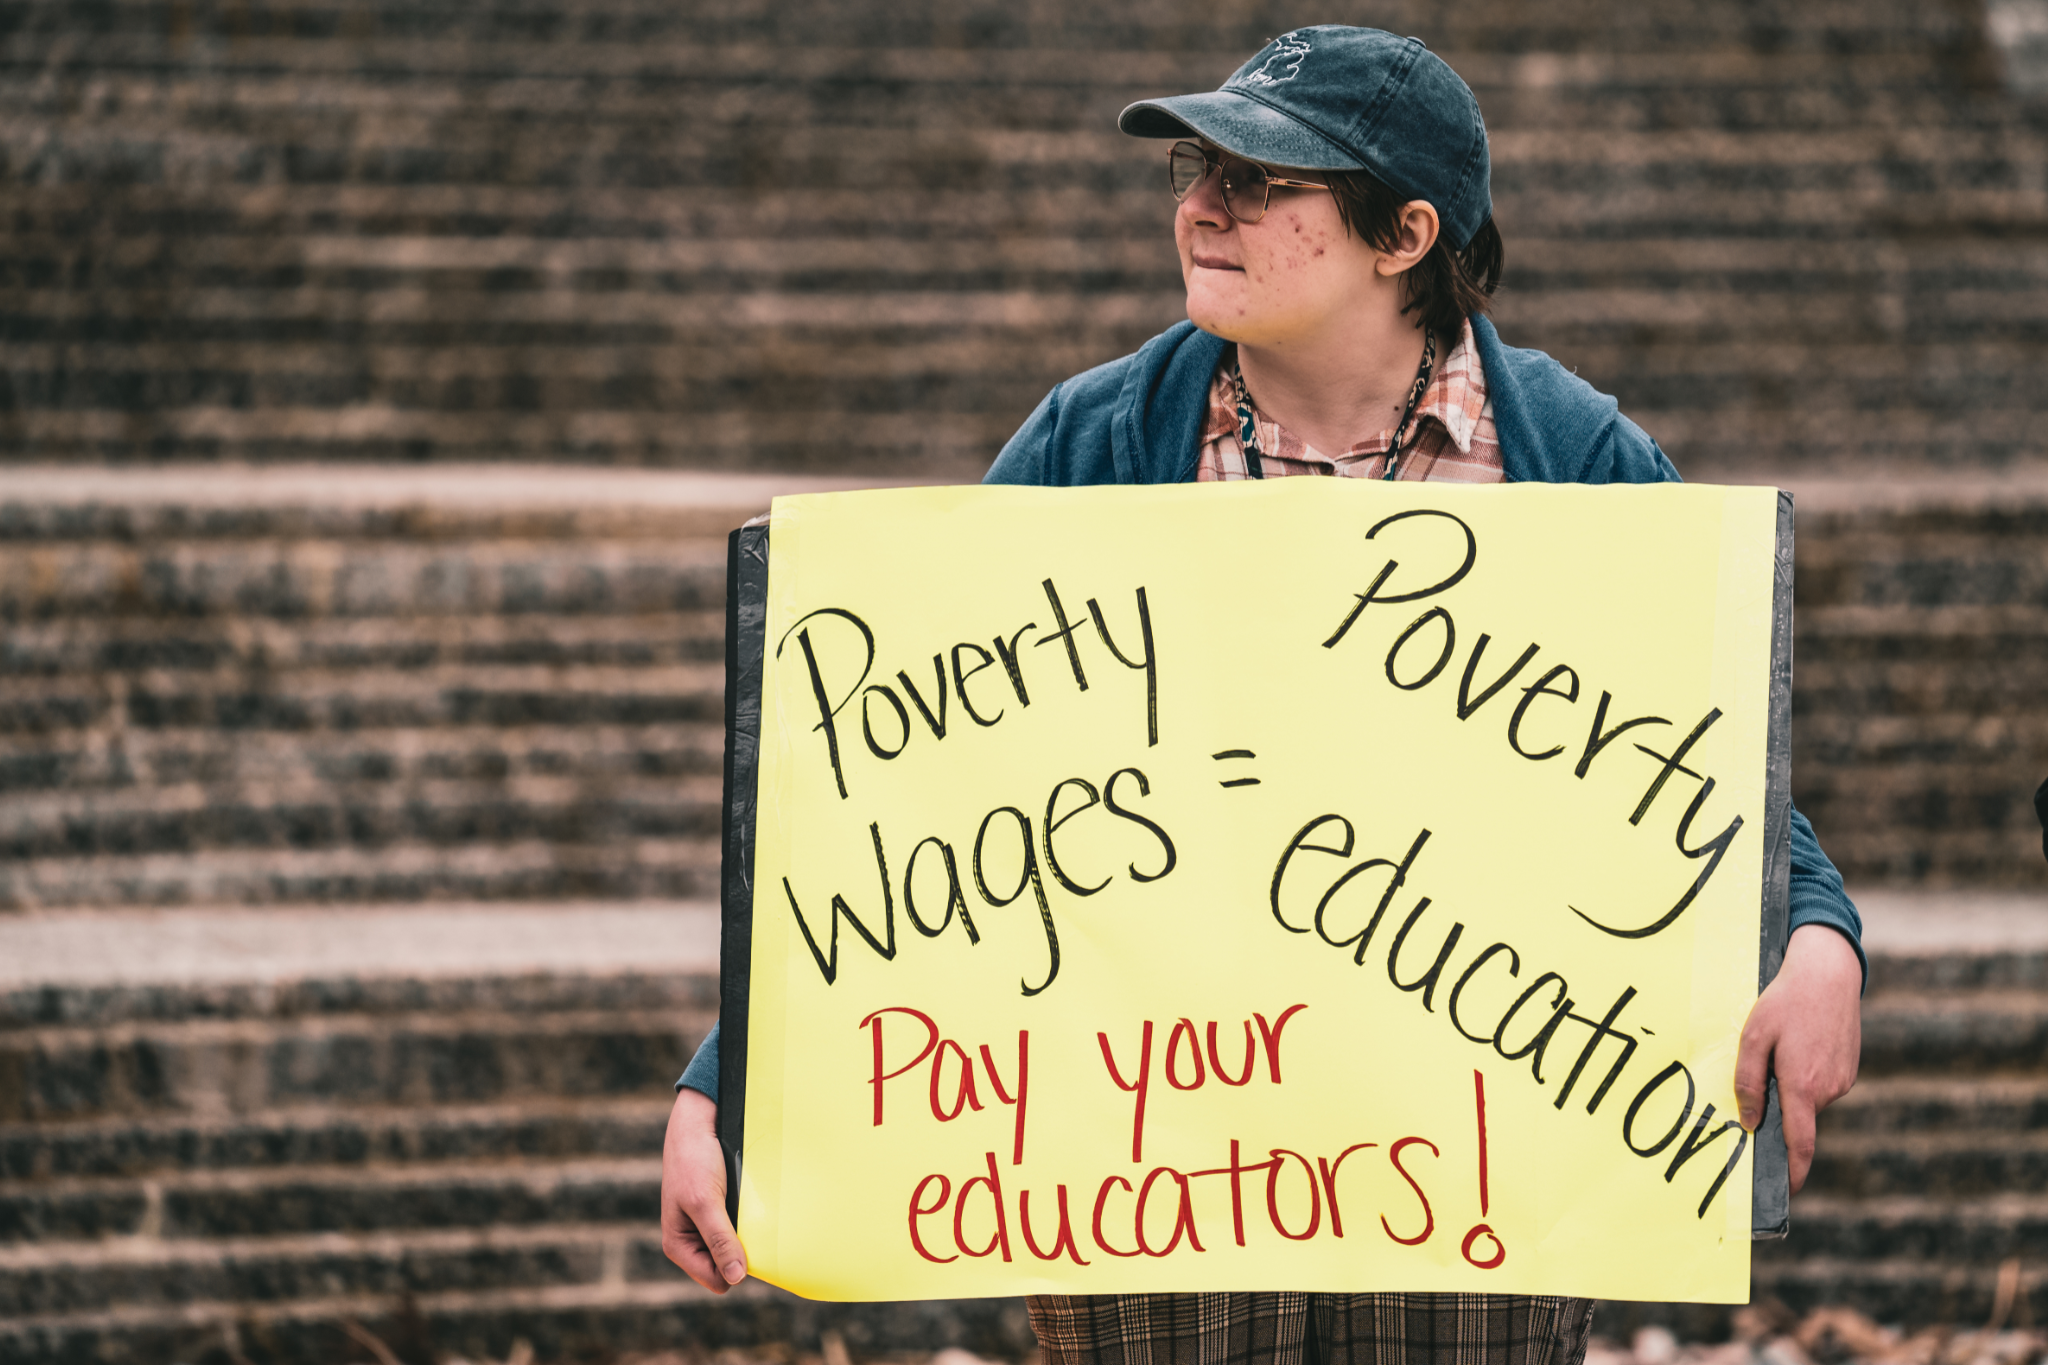 Poverty
wages
=
Poverty
education
Pay your
educators!